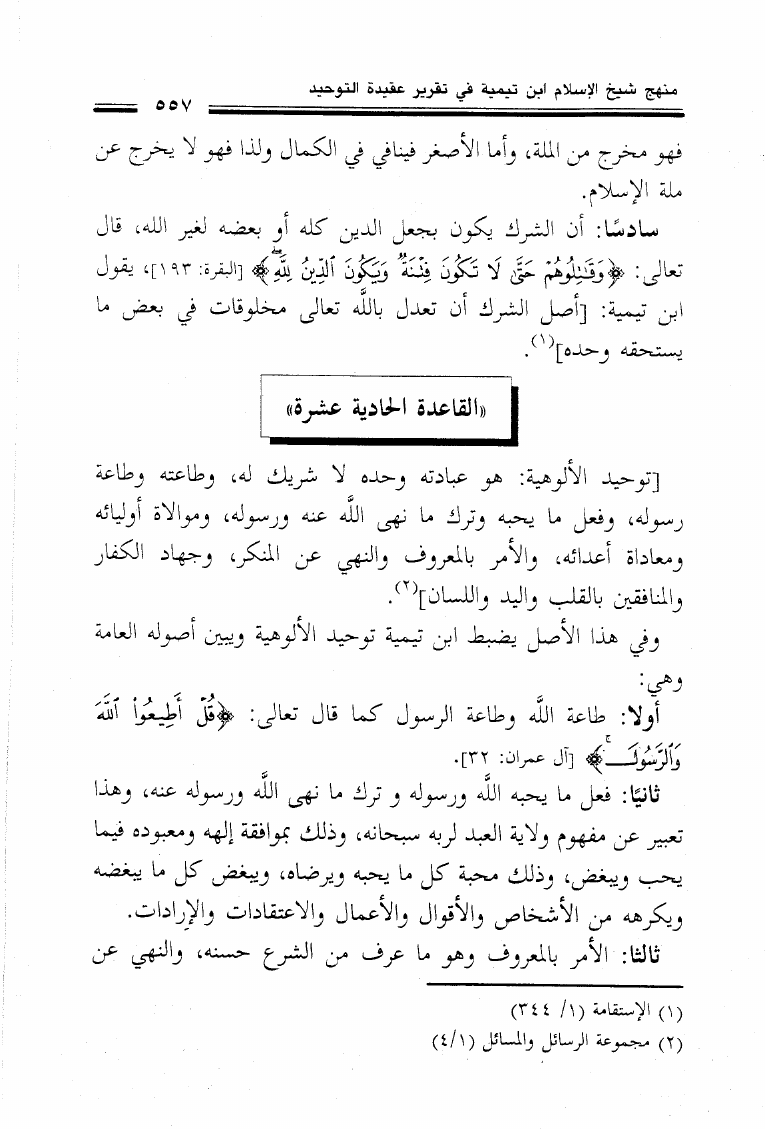 منهج شيخ الإسلام ابن تيمية في تقرير عقيدة التوحيد
٥٥٧
فهو مخرج من الملة، وأما الأصغر فينافي في الكمال ولذا فهو لا يخرج عن
ملة الإسلام.
سادسًا: أن الشرك يكون بجعل الدين كله أو بعضه لغير الله، قال
تعالى: ﴿وَقَٰتِلُوهُمۡ حَتَّىٰ لَا تَكُونَ فِتۡنَةٞ وَيَكُونَ ٱلدِّينُ لِلَّهِۖ﴾ [البقرة: ١٩٣]، يقول
ابن تيمية: [أصل الشرك أن تعدل بالله تعالى مخلوقات في بعض ما
يستحقه وحده](١).
«القاعدة الحادية عشرة»
[توحيد الألوهية: هو عبادته وحده لا شريك له، وطاعته وطاعة
رسوله، وفعل ما يحبه وترك ما نهى اللَّه عنه ورسوله، وموالاة أوليائه
ومعاداة أعدائه، والأمر بالمعروف والنهي عن المنكر، وجهاد الكفار
والمنافقين بالقلب واليد واللسان](٢).
وفي هذا الأصل يضبط ابن تيمية توحيد الألوهية ويبين أصوله العامة
وهي:
أولا: طاعة اللَّه وطاعة الرسول كما قال تعالى: ﴿قُلۡ أَطِيعُواْ ٱللَّهَ
وَٱلرَّسُولَۖ﴾ [آل عمران: ٣٢].
ثانيًا: فعل ما يحبه اللَّه ورسوله و ترك ما نهى اللَّه ورسوله عنه، وهذا
تعبير عن مفهوم ولاية العبد لربه سبحانه، وذلك بموافقة إلهه ومعبوده فيما
يحب ويبغض، وذلك محبة كل ما يحبه ويرضاه، ويبغض كل ما يبغضه
ويكرهه من الأشخاص والأقوال والأعمال والاعتقادات والإرادات.
ثالثا: الأمر بالمعروف وهو ما عرف من الشرع حسنه، والنهي عن
(١) الإستقامة (١/ ٣٤٤)
(٢) مجموعة الرسائل والمسائل (٤/١)